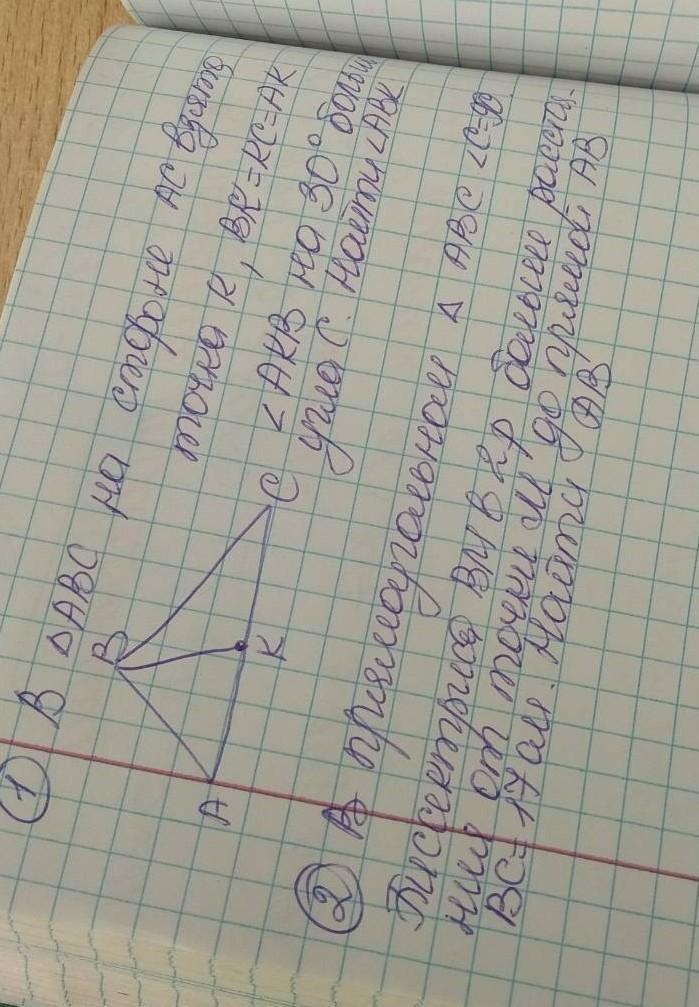 ① В △ABC на стороне AC взята
точка K, BK=KC=AK
<AKB на 30° больш
угла C. Найти <ABK
B
A
K
C
② В прямоугольном △ ABC <C=90
Биссектриса BM в 2 р больше расстоя-
ния от точки M до прямой AB
BC=17 см. Найти AB